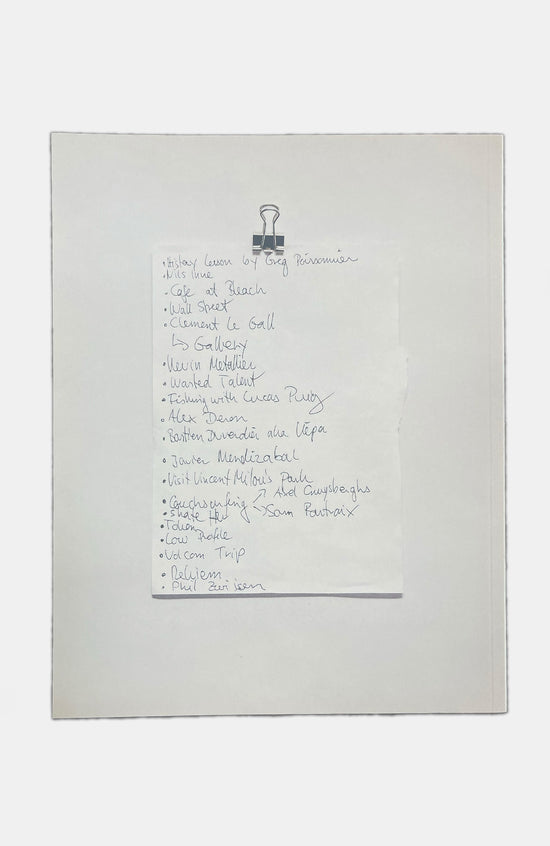 • History Lesson by Greg Poissonnier
• Nils Inne
• Cafe at Bleach
• Wall Street
• Clement Le Gall
↳ Gallery
• Kevin Metallier
• Wasted Talent
• Fishing with Lucas Puig
• Alex Deron
• Bastien Duverdier aka Vépa
• Javier Mendizabal
• Visit Vincent Milou's Park
• Couchsurfing ↗ Axel Cruysberghs
↘ Sam Partaix
• Skate
• Token
• Low Profile
• Volcom Trip
• Rekiem
• Phil Zwijsen